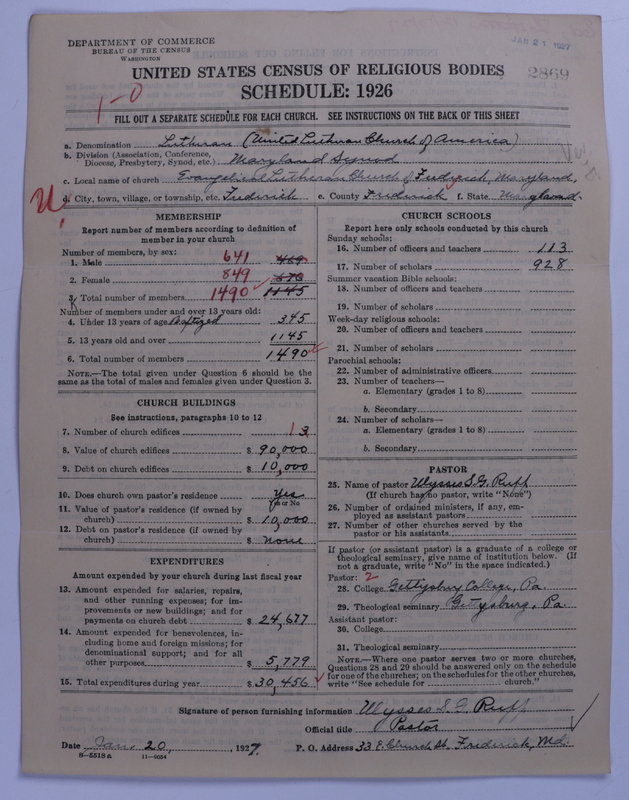 DEPARTMENT OF COMMERCE
BUREAU OF THE CENSUS
WASHINGTON
JAN 21 1927
2869
UNITED STATES CENSUS OF RELIGIOUS BODIES
SCHEDULE: 1926
1-0
FILL OUT A SEPARATE SCHEDULE FOR EACH CHURCH. SEE INSTRUCTIONS ON THE BACK OF THIS SHEET
a. Denomination Lutheran (United Lutheran Church of America)
b. Division (Association, Conference, Diocese, Presbytery, Synod, etc.) Maryland Synod
c. Local name of church Evangelical Lutheran Church of Frederick, Maryland,
U
d. City, town, village, or township, etc. Frederick e. County Frederick f. State Maryland
MEMBERSHIP
Report number of members according to definition of
member in your church
Number of members, by sex:
1. Male 641 469
2. Female 849 676
3. Total number of members 1490 1145
Number of members under and over 13 years old:
4. Under 13 years of age Baptized 345
5. 13 years old and over 1145
6. Total number of members 1490
NOTE.—The total given under Question 6 should be the
same as the total of males and females given under Question 3.
CHURCH BUILDINGS
See instructions, paragraphs 10 to 12
7. Number of church edifices 1 3
8. Value of church edifices $ 90,000
9. Debt on church edifices $ 10,000
10. Does church own pastor's residence Yes
Yes or No
11. Value of pastor's residence (if owned by
church) $ 10,000
12. Debt on pastor's residence (if owned by
church) $ none
EXPENDITURES
Amount expended by your church during last fiscal year
13. Amount expended for salaries, repairs,
and other running expenses; for im-
provements or new buildings; and for
payments on church debt $ 24,677
14. Amount expended for benevolences, in-
cluding home and foreign missions; for
denominational support; and for all
other purposes $ 5,779
15. Total expenditures during year $ 30,456
CHURCH SCHOOLS
Report here only schools conducted by this church
Sunday schools:
16. Number of officers and teachers 113
17. Number of scholars 928
Summer vacation Bible schools:
18. Number of officers and teachers
19. Number of scholars
Week-day religious schools:
20. Number of officers and teachers
21. Number of scholars
Parochial schools:
22. Number of administrative officers
23. Number of teachers—
a. Elementary (grades 1 to 8)
b. Secondary
24. Number of scholars—
a. Elementary (grades 1 to 8)
b. Secondary
PASTOR
25. Name of pastor Ulysses S. G. Rupp
(If church has no pastor, write "None")
26. Number of ordained ministers, if any, em-
ployed as assistant pastors
27. Number of other churches served by the
pastor or his assistants
If pastor (or assistant pastor) is a graduate of a college or
theological seminary, give name of institution below. (If
not a graduate, write "No" in the space indicated.)
Pastor: 2
28. College Gettysburg College, Pa.
29. Theological seminary Gettysburg, Pa.
Assistant pastor:
30. College
31. Theological seminary
NOTE.—Where one pastor serves two or more churches,
Questions 28 and 29 should be answered only on the schedule
for one of the churches; on the schedules for the other churches,
write "See schedule for church."
Signature of person furnishing information Ulysses S. G. Rupp
Official title Pastor
Date Jan. 20, 1927. P. O. Address 33 E. Church St., Frederick, Md.
8—5518a 11—9034